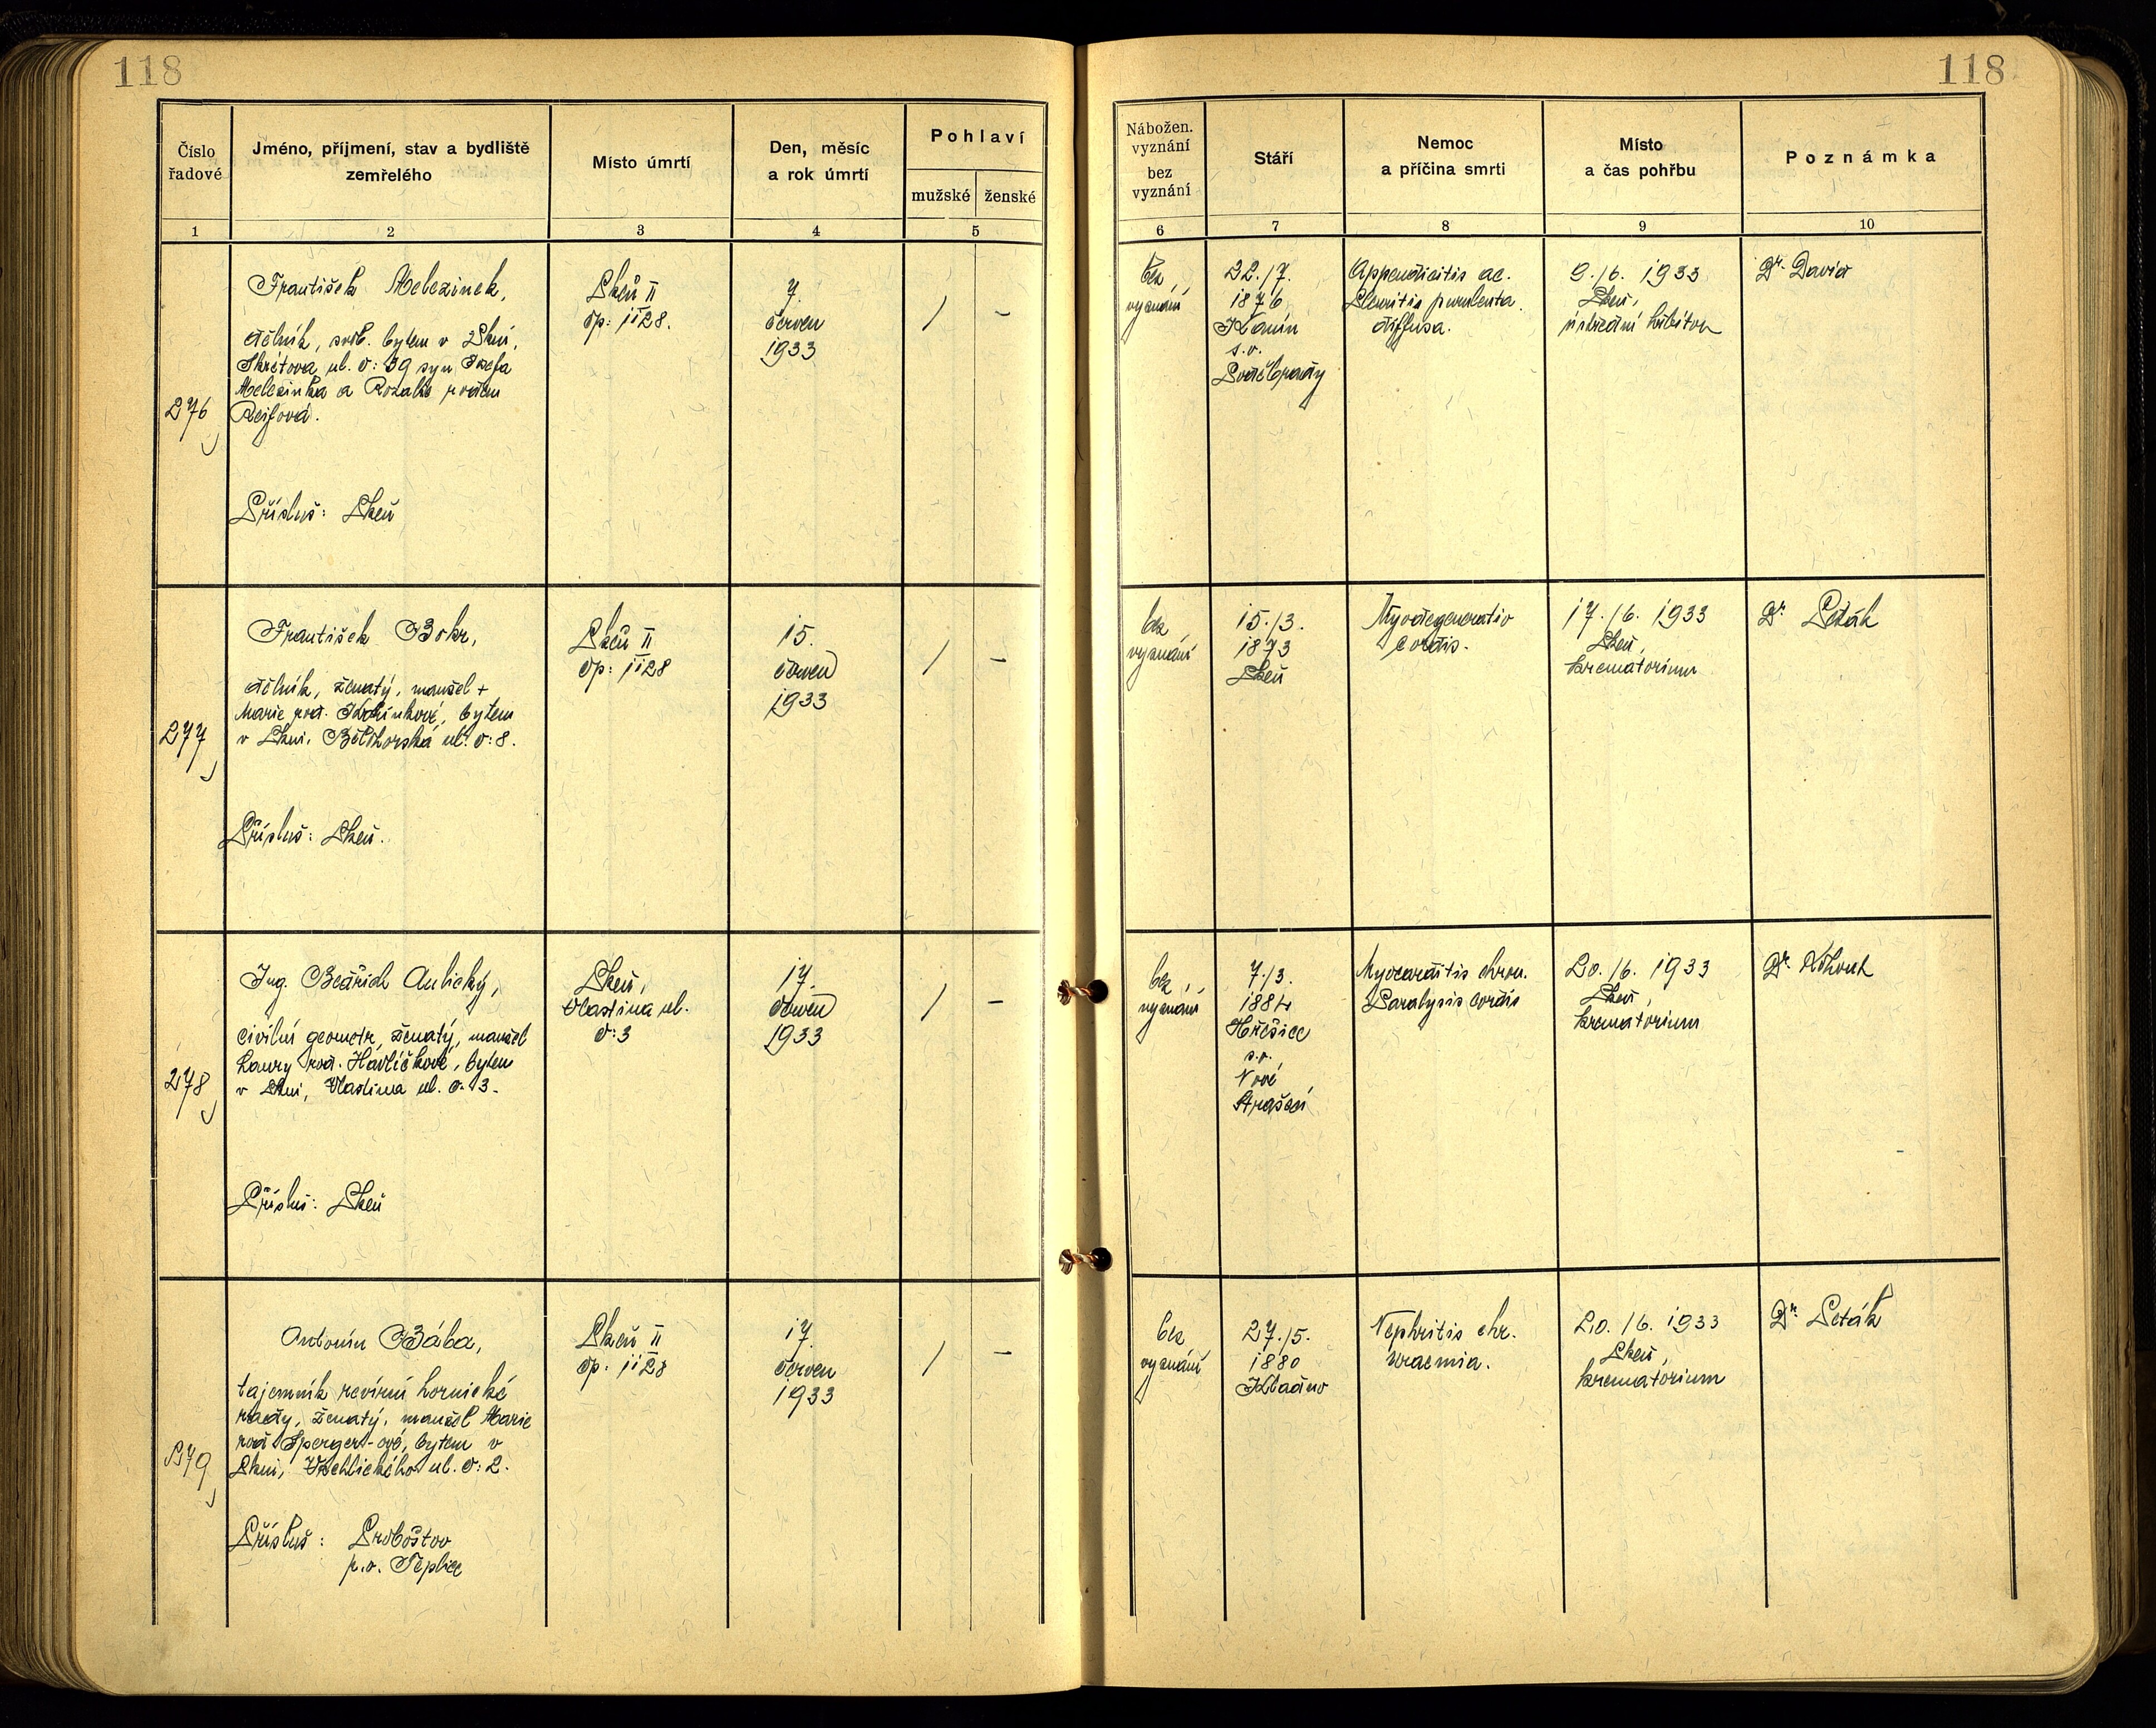 118
118
Číslo
řadové
Jméno, příjmení, stav a bydliště
zemřelého
Místo úmrtí
Den, měsíc
a rok úmrtí
Pohlaví
mužské
ženské
Nábožen.
vyznání
bez
vyznání
Stáří
Nemoc
a příčina smrti
Místo
a čas pohřbu
Poznámka
1
2
3
4
5
6
7
8
9
10
276
František Melezinek,
dělník, svob. bytem v Plzni,
Škrétova ul. č: 39 syn Josefa
Melezinka a Rozalie rodem
Reifová.
Přísluš: Plzeň
Plzeň II
čp: 1128.
7.
červen
1933
/
-
bez
vyznání
22./7.
1876
Klanín
s.o.
Poděbrady
Appendicitis ac.
Pleuritis purulenta
diffusa.
9./6. 1933
Plzeň,
ústřední hřbitov
Dr. David
277
František Bokr,
dělník, ženatý, manžel +
Marie roz.
bytem
v Plzni, Bělohorská ul. č: 8.
Přísluš: Plzeň.
Plzeň II
čp: 1128
15.
červen
1933
/
-
bez
vyznání
15./3.
1873
Plzeň
Myodegeneratio
cordis.
17./6. 1933
Plzeň,
krematorium
Dr. Peták
278
Ing. Bedřich Aulický,
civilní geometr, ženatý, manžel
Laury roz. Havlíčkové, bytem
v Plzni, Vlastina ul. č. 3.
Přísluš: Plzeň
Plzeň,
Vlastina ul.
č: 3
17.
červen
1933
/
-
bez
vyznání
7./3.
1884
Hřešice
p.o.
Nové
Strašecí
Myocarditis chron.
Paralysis cordis
20./6. 1933
Plzeň,
krematorium
Dr. Kohout
279
Antonín Bába,
tajemník revírní hornické
rady, ženatý, manžel Marie
roz. Sperger-ové, bytem v
Plzni, Vrchlického ul. č: 2.
Přísluš: Proboštov
p.o. Teplice
Plzeň II
čp: 1128
17.
červen
1933
/
-
bez
vyznání
27./5.
1880
Kladno
Nephritis chr.
uraemia.
20./6. 1933
Plzeň,
krematorium
Dr. Peták